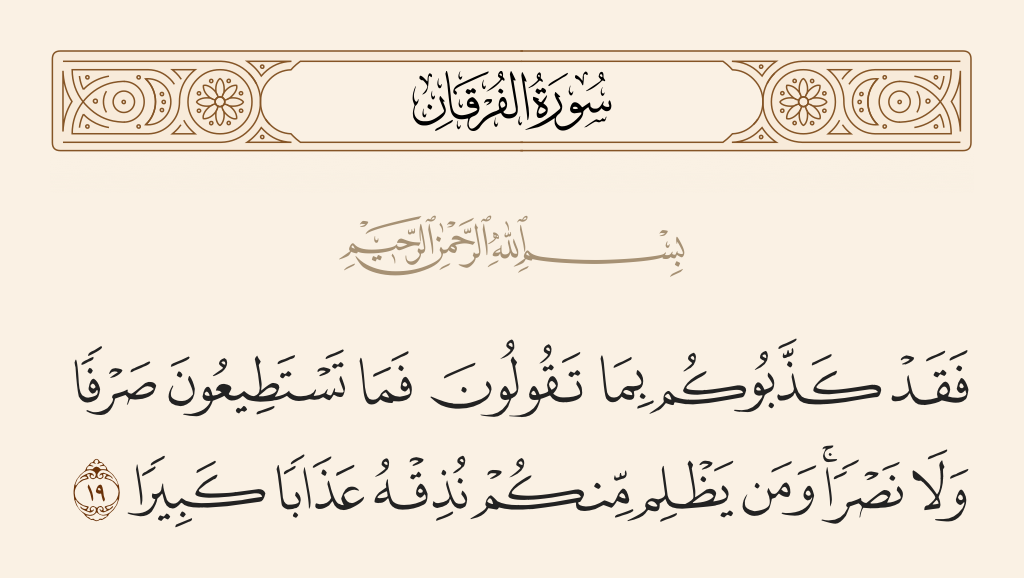 سُورَةُ الفُرْقَانِ
بِسْمِ ٱللَّهِ ٱلرَّحْمَٰنِ ٱلرَّحِيمِ
فَقَدْ كَذَّبُوكُم بِمَا تَقُولُونَ فَمَا تَسْتَطِيعُونَ صَرْفًا
وَلَا نَصْرًا ۚ وَمَن يَظْلِم مِّنكُمْ نُذِقْهُ عَذَابًا كَبِيرًا ١٩